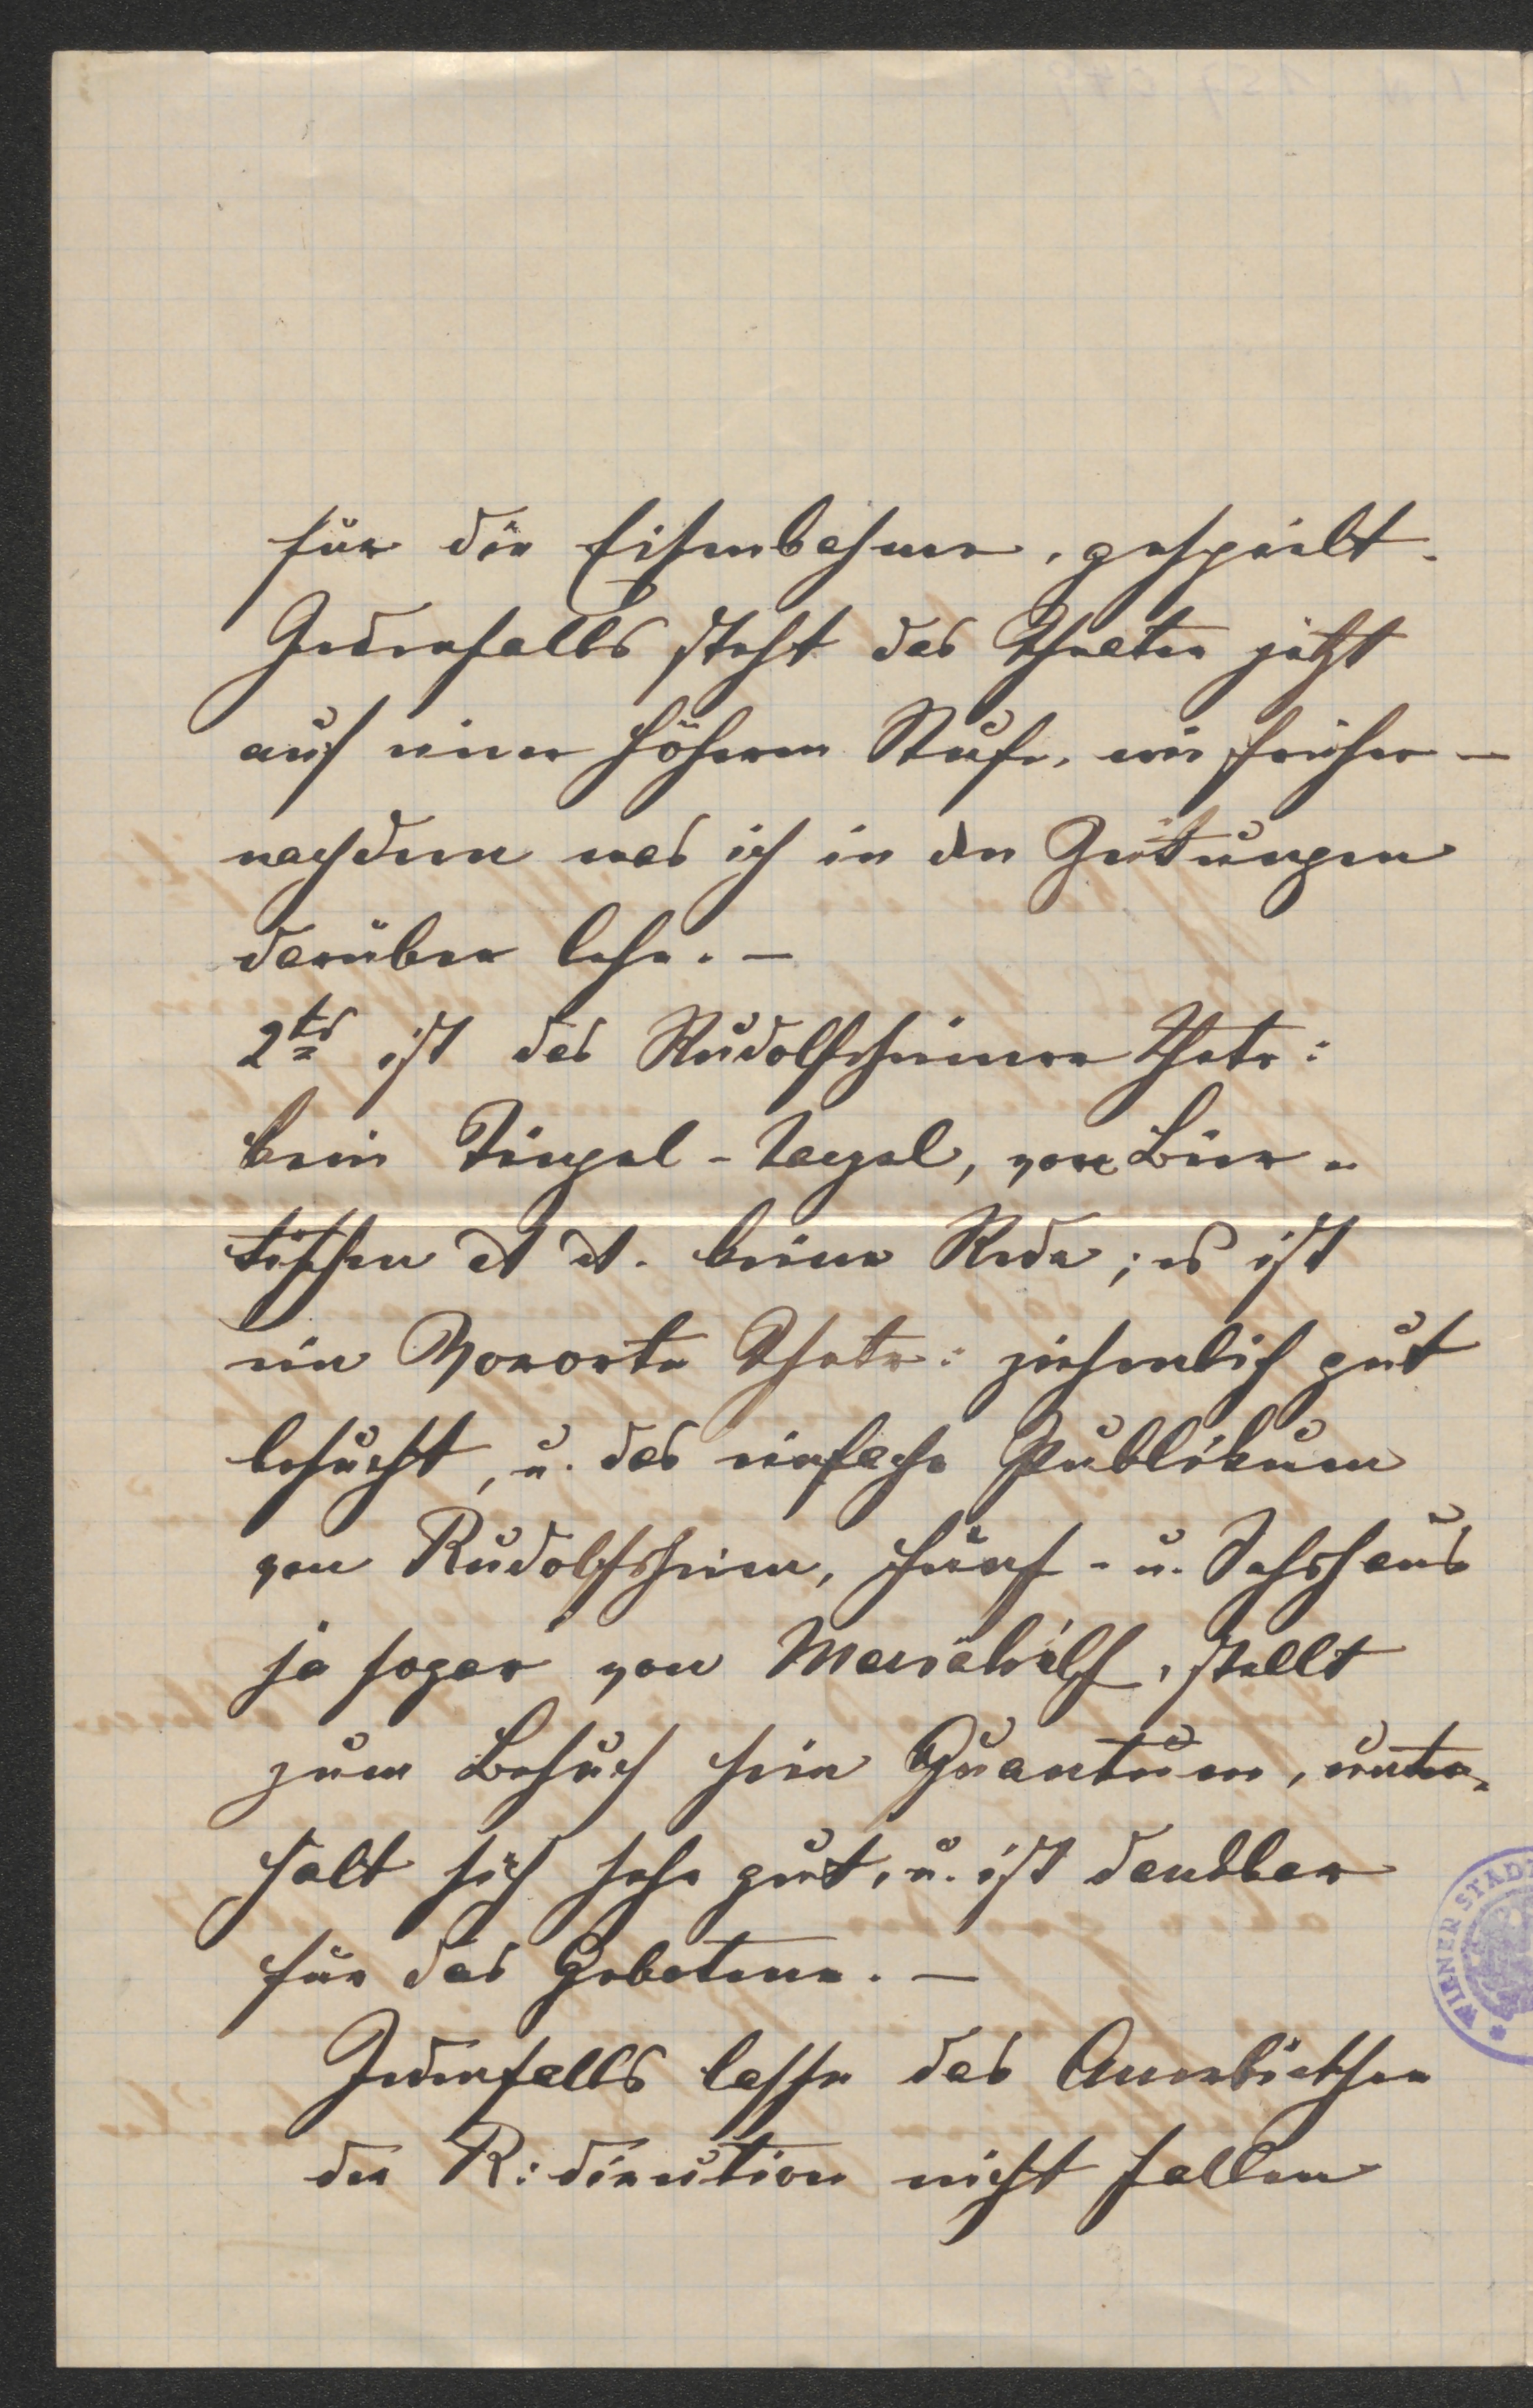 für die Eisenbahner, gespielt.
Jedenfalls steht das Theater jetzt
auf einer höheren Stufe, wie früher —
nachdem was ich in den Zeitungen
darüber lese. —
2tes ist das Rudolfsheimer Theatr:
kein Tingel-Tangel, von Bier-
tischen et et. keine Rede; es ist
ein Vororte Theatr: ziehmlich gut
besucht, u. das einfache Publikum
von Rudolfsheim, Fünf- u. Sechshaus
ja sogar von Mariahilf, stellt
zum Besuch sein Quantum, unter-
halt sich sehr gut, u. ist dankbar
für das Gebotene. —
Jedenfalls lasse das
der R: direction nicht fallen
WIENER STADT